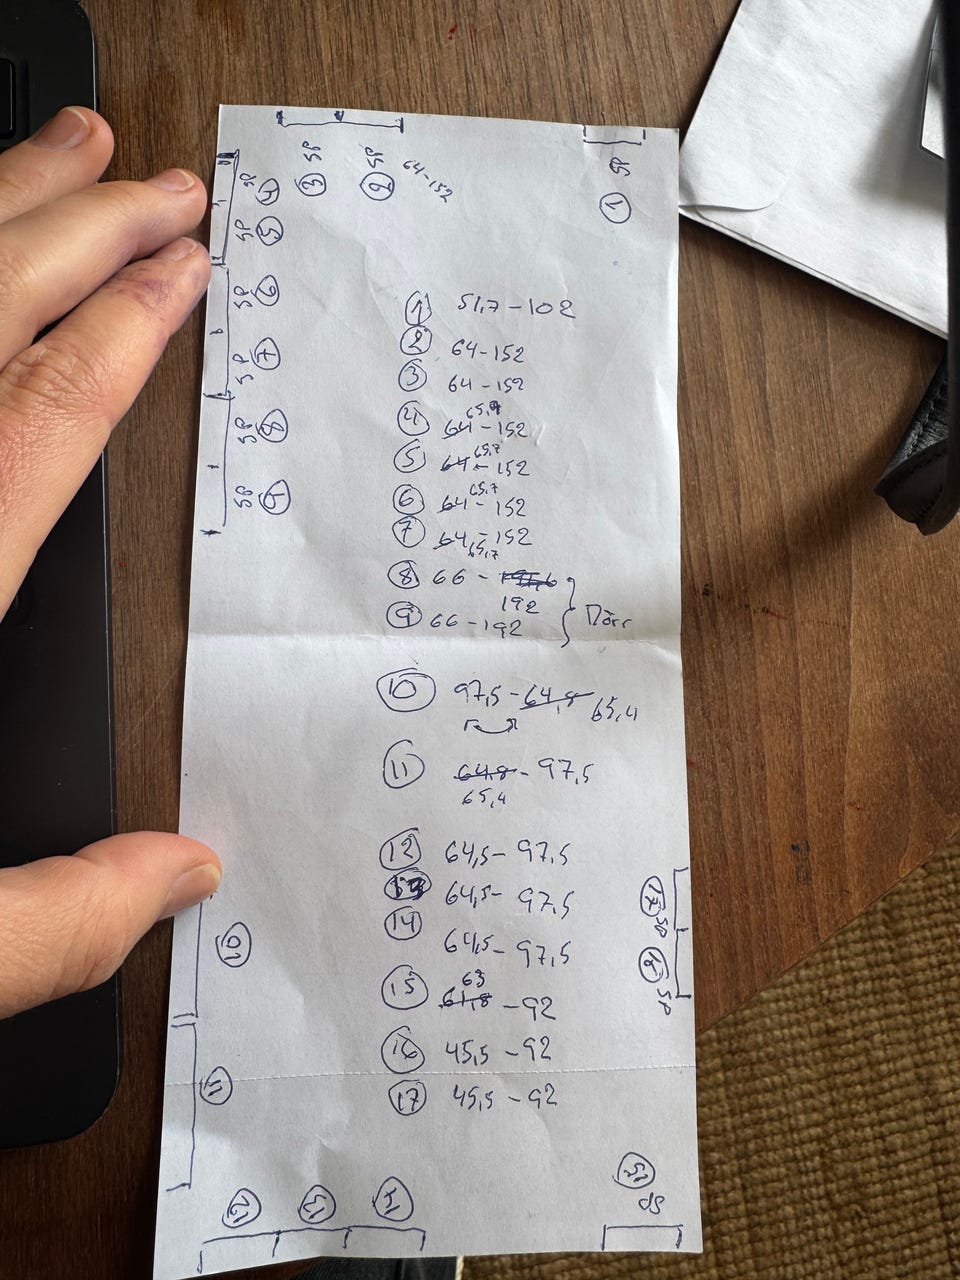 SP SP SP
③ ② 64-152 ①
SP ④
SP ⑤
SP ⑥
SP ⑦
SP ⑧
SP ⑨
① 51,7 - 102
② 64 - 152
③ 64 - 152
④ 64 65,7 - 152
⑤ 64 65,7 - 152
⑥ 64 65,7 - 152
⑦ 64 65,7 - 152
⑧ 66 - 192
⑨ 66 - 192
⑩ 97,5 - 64,8 65,4
⑪ 64,8 - 97,5
65,4
⑫ 64,5 - 97,5
⑬ 64,5 - 97,5
⑭ 64,5 - 97,5
⑮ 61,8 63 - 92
⑯ 45,5 - 92
⑰ 45,5 - 92
⑰ SP
⑯ SP
⑩
⑪
⑫ ⑬ ⑭ ⑮
SP